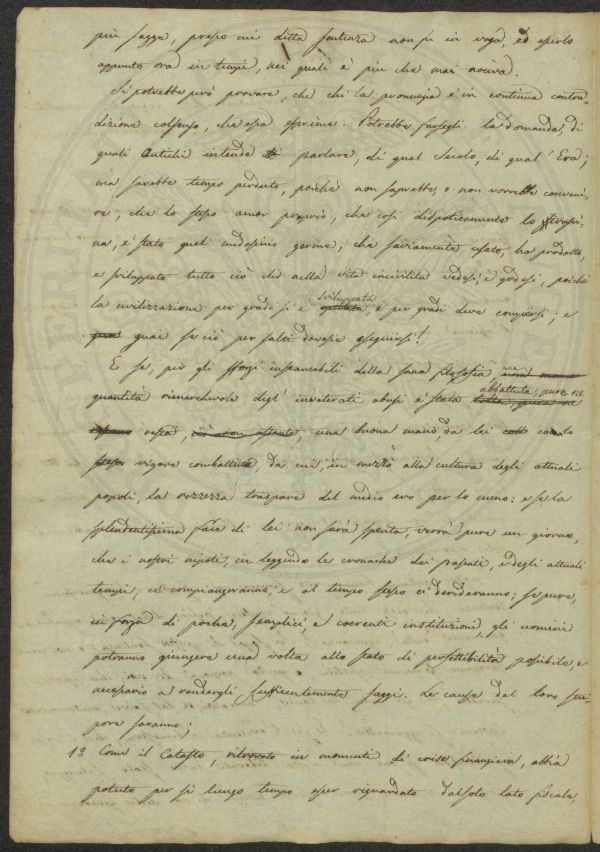 più saggo, presso cui detta sentenza non fu in voga, ed esserlo
appunto ora in tempi, nei quali è più che mai nociva.
Si potrebbe però provare, che chi la pronunzia è in continua contra-
dizione col senso, che essa esprime. Potrebbe farsegli la domanda, di
quali Antichi intende di parlare, di qual Secolo, di qual' Era;
ma sarebbe tempo perduto, poichè non saprebbe, o non vorrebbe conveni-
re, che lo stesso amor proprio, che così dispoticamente lo strasci-
na, è stato quel medesimo germe, che saviamente usato, ha prodotto,
e sviluppato tutto ciò che nella vita incivilita vedesi, e godesi, poichè
la civilizzazione per gradi si è sviluppata e per gradi deve compiersi; e
guai se ciò per salti dovesse eseguirsi!
E se, per gli sforzi instancabili della sana filosofia una
quantità rimarchevole degl' inveterati abusi è stata abbattuta, pure ne
resta, una buona mano, da lei collo
stesso vigore combattuta, da cui, in mezzo alla cultura degli attuali
popoli, la rozzezza traspare del medio evo per lo meno: e se la
splendentissima face di lei non sarà spenta, verrà pure un giorno,
che i nostri nipoti, in leggendo le cronache dei passati, e degli attuali
tempi, ci compiangeranno, e al tempo stesso ci derideranno; se pure,
in forza di poche, semplici, e coerenti instituzioni, gli uomini
potranno giungere una volta allo stato di perfettibilità possibile e
necessario a rendergli sufficientemente saggi. Le cause del loro stu-
pore saranno;
1.° Come il Catasto, ritrovato in momenti di crise finanziera, abbia
potuto per sì lungo tempo esser riguardato dal solo lato fiscale,